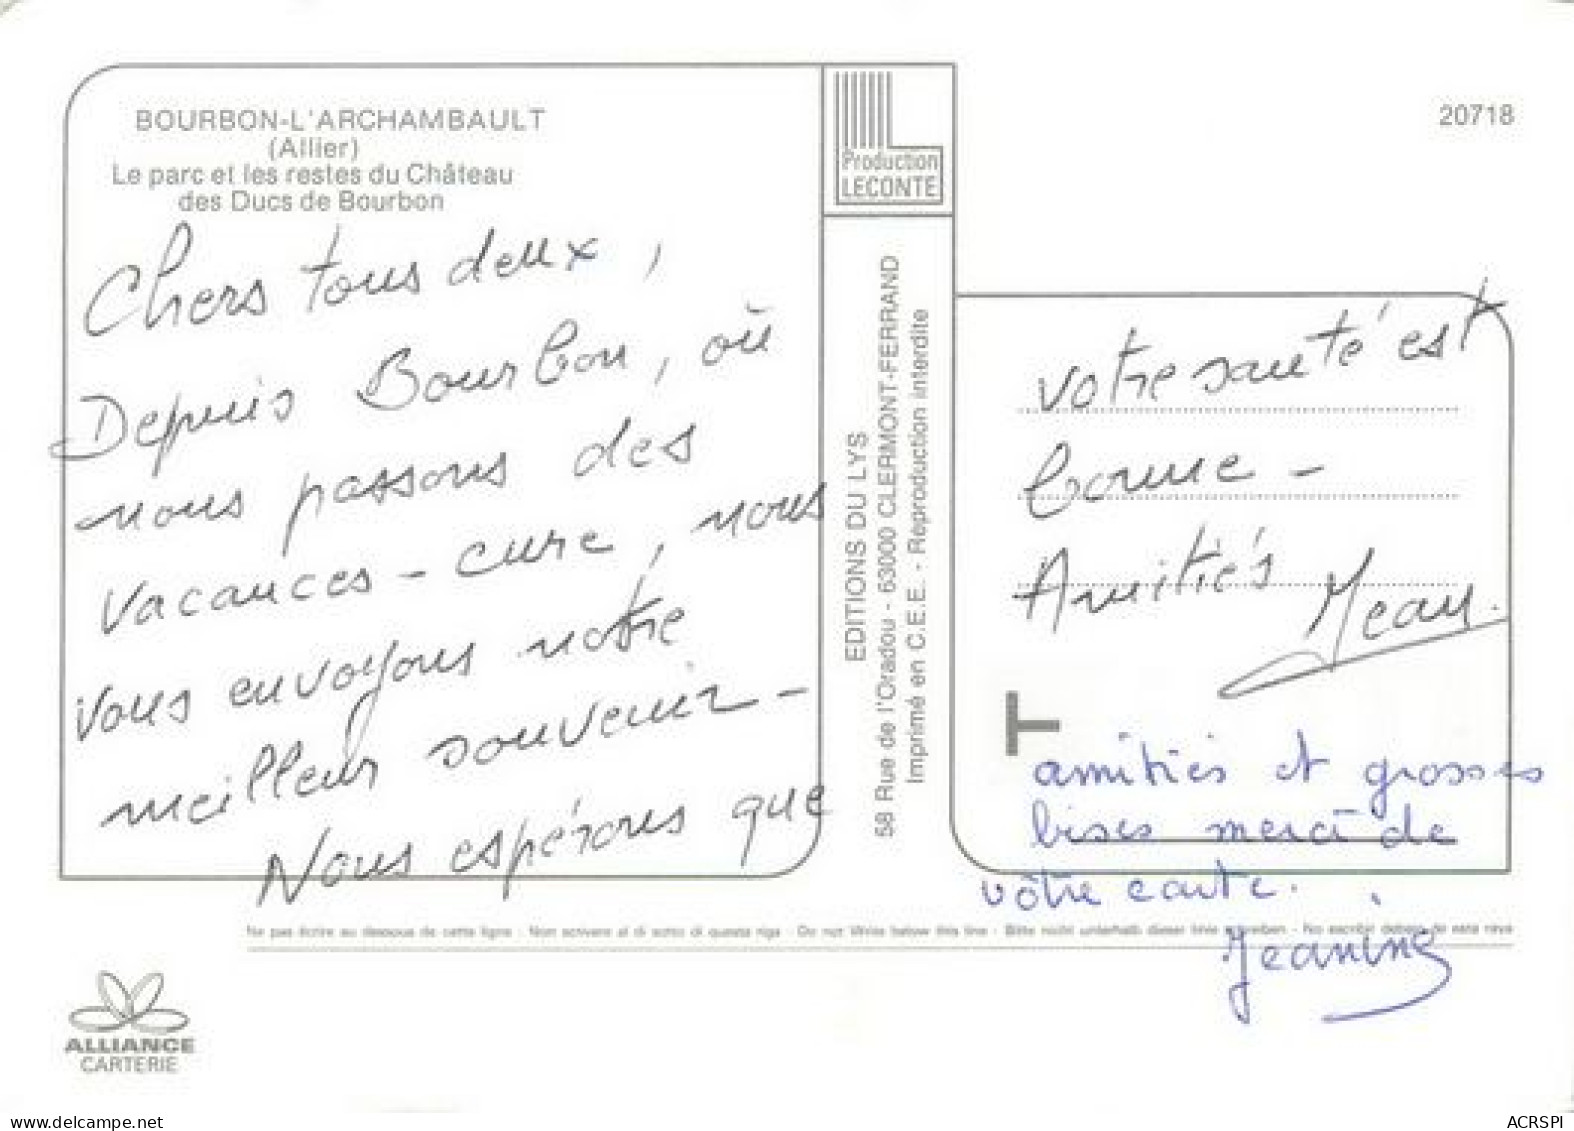 BOURBON-L'ARCHAMBAULT
(Allier)
Le parc et les restes du Château
des Ducs de Bourbon
Chers tous deux,
Depuis Bourbon, où
nous passons des
vacances - cure, nous
vous envoyons notre
meilleur souvenir -
Nous espérons que
Production
LECONTE
EDITIONS DU LYS
58 Rue de l'Oradou - 63000 CLERMONT-FERRAND
Imprimé en C.E.E. - Reproduction interdite
20718
votre santé est
bonne -
Amitiés Jean.
T
amitiés et grosses
bises merci de
vôtre carte.
Jeanine
Ne pas écrire au dessous de cette ligne - Non scrivere al di sotto di questa riga - Do not Write below this line - Bitte nicht unterhalb dieser linie schreiben - No escribir debajo de esta raya
ALLIANCE
CARTERIE
www.delcampe.net
ACRSPI